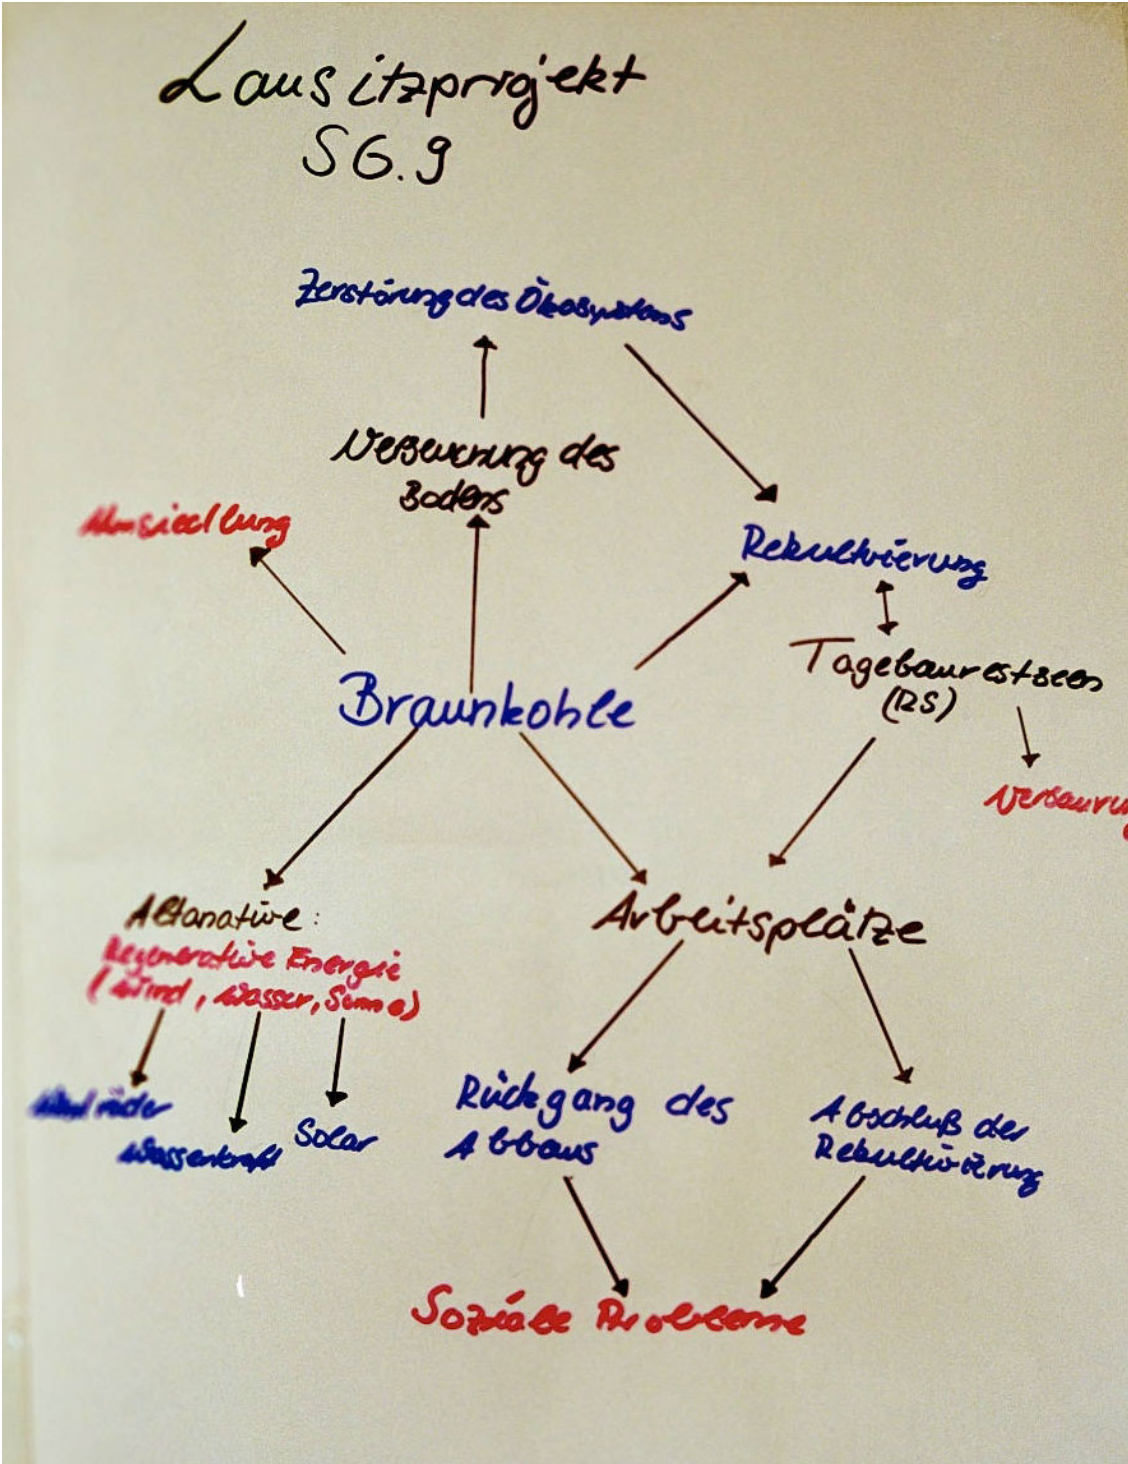 Lausitzprojekt
SG.9
Zerstörung des Ökosystems
Verseuchung des
Bodens
Umsiedlung
Rekultivierung
Braunkohle
Tagebaurestseen
(RS)
Versaurung
Altanative:
Regenerative Energie
(Wind, Wasser, Sonne)
Arbeitsplätze
Windräder
Wasserkraft
Solar
Rückgang des
Abbaus
Abschluß der
Rekultivierung
Soziale Probleme